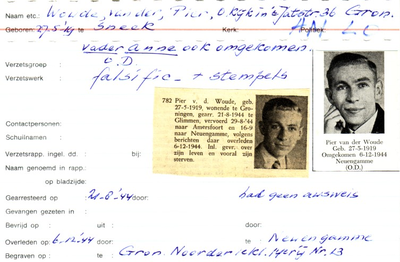 Naam etc: Woude, van der, Pier, O. Kijk in 't Jatstr. 36 Gron.
Geboren: 27-5-'19 te Sneek Kerk: Politiek:
Vader Anne ook omgekomen
Verzetsgroep O.D.
Verzetswerk falsific. + stempels
782 Pier v. d. Woude, geb.
27-5-1919, wonende te Gro-
ningen, gearr. 21-8-1944 te
Glimmen, vervoerd 29-8-'44
naar Amersfoort en 16-9
naar Neuengamme, volgens
berichten daar overleden
6-12-1944. Inl. gevr. over
zijn leven en vooral zijn
sterven.
Pier van der Woude
Geb. 27-5-1919
Omgekomen 6-12-1944
Neuengamme
(O.D.)
Contactpersonen:
Schuilnamen :
Verzetsrapp, ingel. dd : bij:
Naam genoemd in rapp. :
op bladzijde:
Gearresteerd op : 21-8-'44 door: had geen ausweis
Gevangen gezeten in :
Bevrijd op : door:
Overleden op : 6-12-'44 door: te Neuengamme
Begraven op : te Gron. Noorderkl. 14e rij Nr. 13